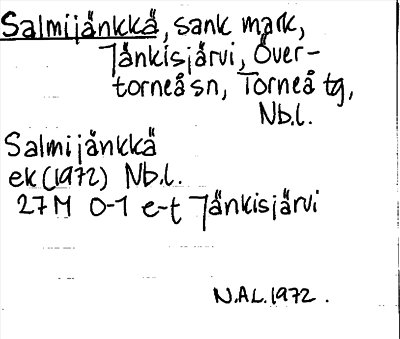 Salmijänkkä, sank mark,
Jänkisjärvi, Över-
torneå sn, Torneå tg,
Nb.l.
Salmijänkkä
ek (1972) Nb.l.
27M 0-1 e-f Jänkisjärvi
N.A.L. 1972.